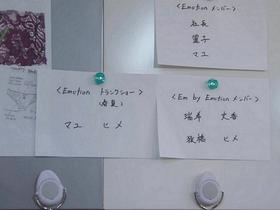 <Emotion メンバー>
社長
霊子
マユ
<Emotion トランクショー>
(春夏)
マユ ヒメ
<Em by Emotion メンバー>
瑞希 文香
ヒメ